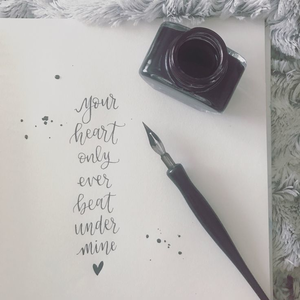 your
heart
only
ever
beat
under
mine